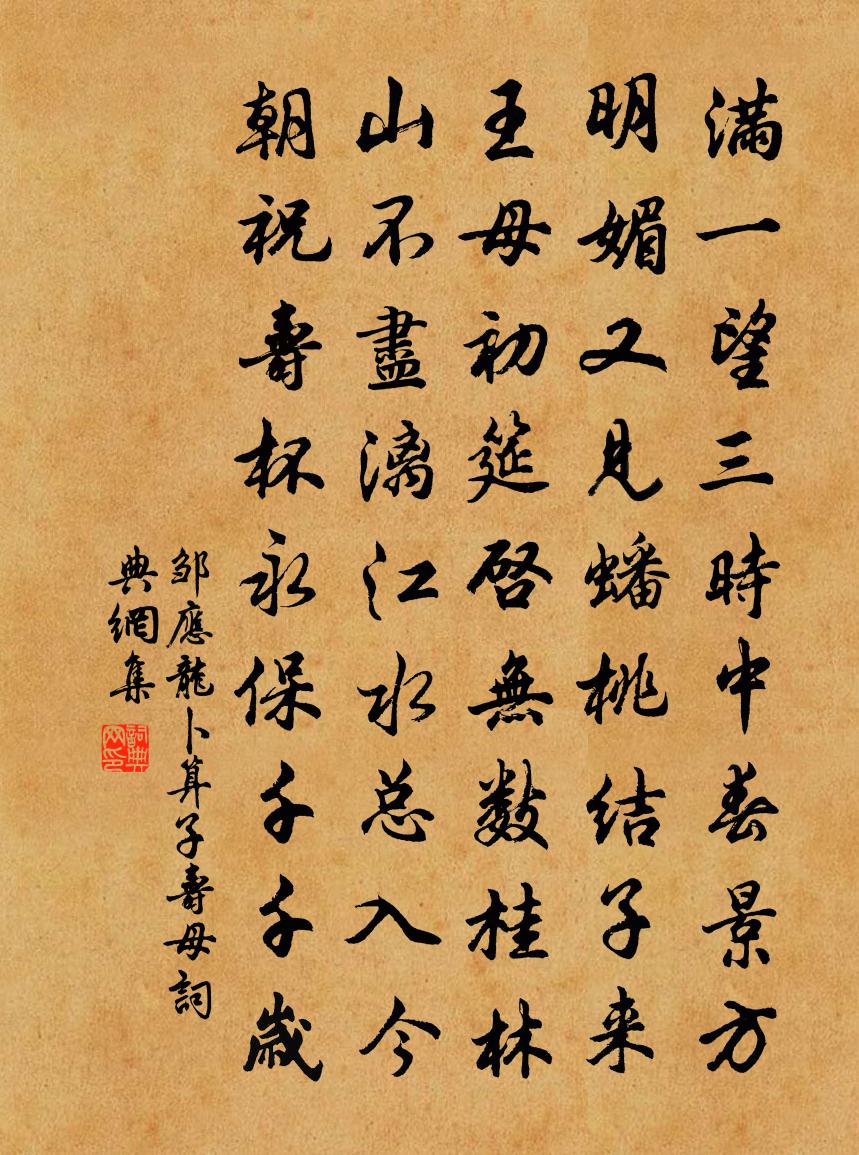 满一望三時中春景方
明媚又見蟠桃结子来
王母初筵啓無數桂林
山不盡漓江水总入今
朝祝壽杯永保千千歲
邹應龍卜算子壽母詞
典網集
詞典网印